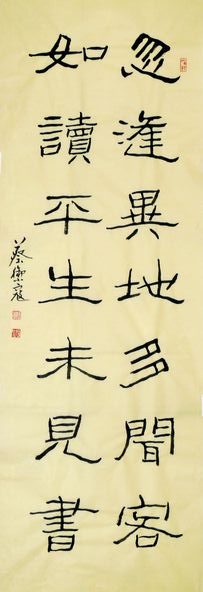 忽逢異地多聞客
如讀平生未見書
蔡